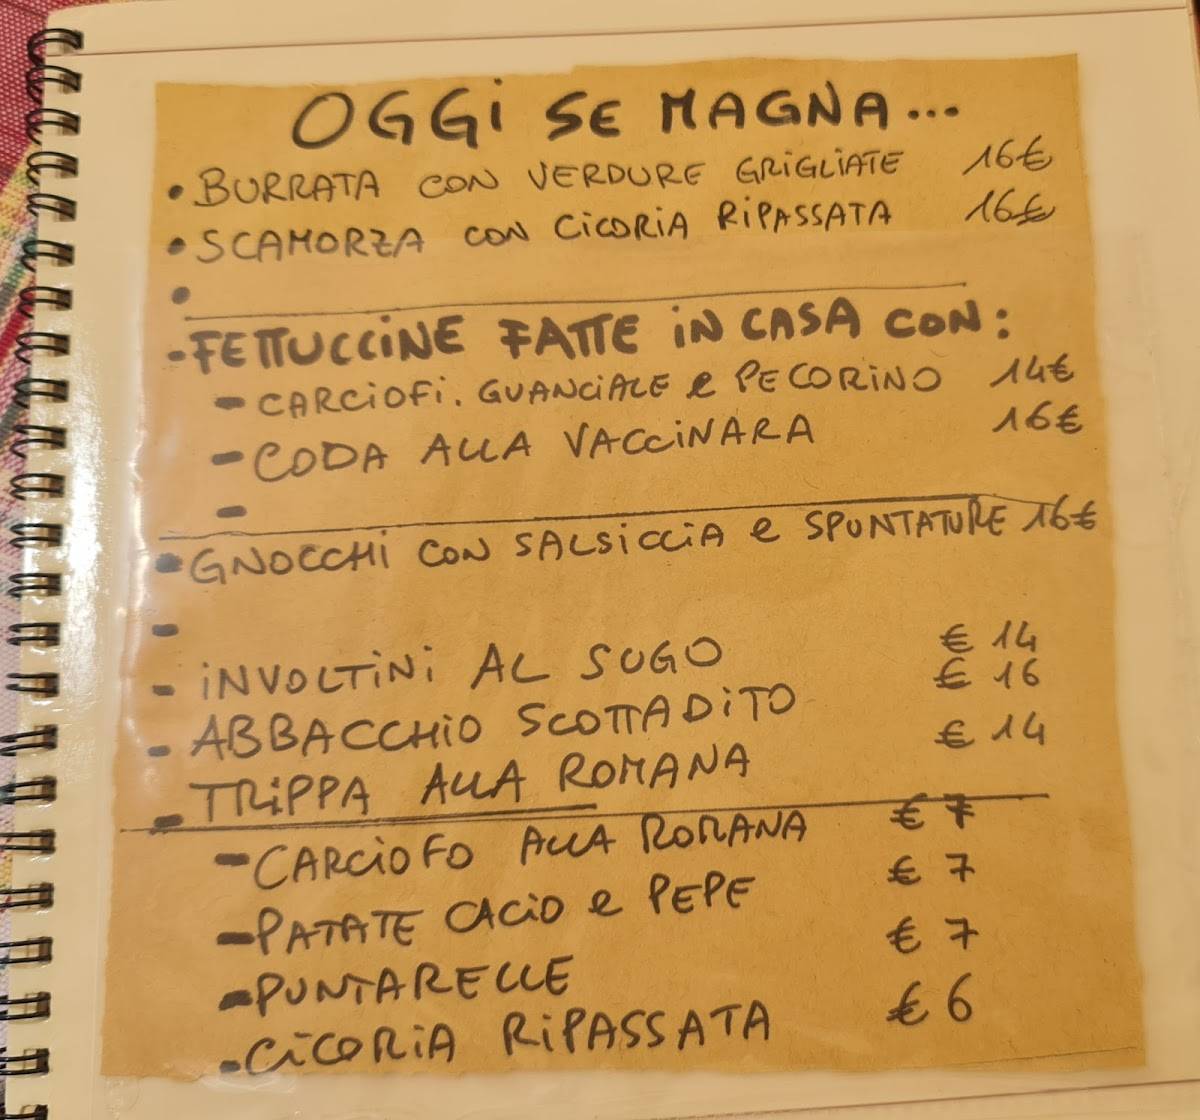 OGGI SE MAGNA...
• BURRATA CON VERDURE GRIGLIATE 16€
• SCAMORZA CON CICORIA RIPASSATA 16€
•
- FETTUCCINE FATTE IN CASA CON:
- CARCIOFI. GUANCIALE e PECORINO 14€
- CODA ALLA VACCINARA 16€
-
• GNOCCHI CON SALSICCIA e SPUNTATURE 16€
-
- INVOLTINI AL SUGO € 14
- ABBACCHIO SCOTTADITO € 16
- TRIPPA ALLA ROMANA € 14
- CARCIOFO ALLA ROMANA € 7
- PATATE CACIO e PEPE € 7
- PUNTARELLE € 7
- CICORIA RIPASSATA € 6